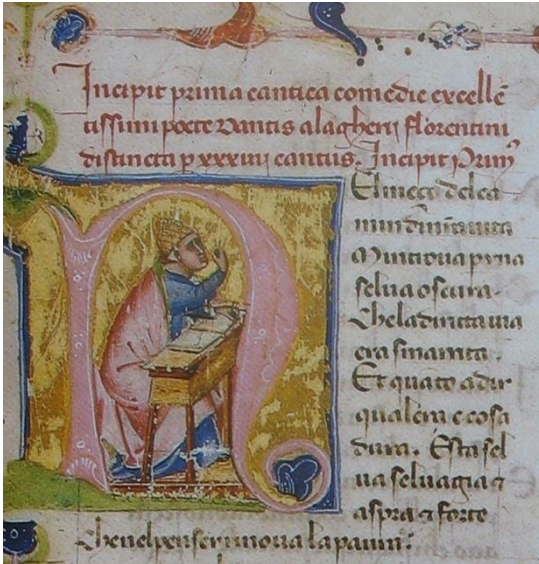 Incipit prima cantica comedie excellē
tissimi poete Dantis alagherij florentini
distincta p xxxiiij cantus. Incipit Prim9
N
El meço del ca
min
Mi ritrova p una
selua oscura.
Che la diritta uia
era smarrita.
Et quāto a dir
qual era e cosa
dura. Esta sel
ua seluagia 
aspra forte
Che nel penser rinoua la paura: